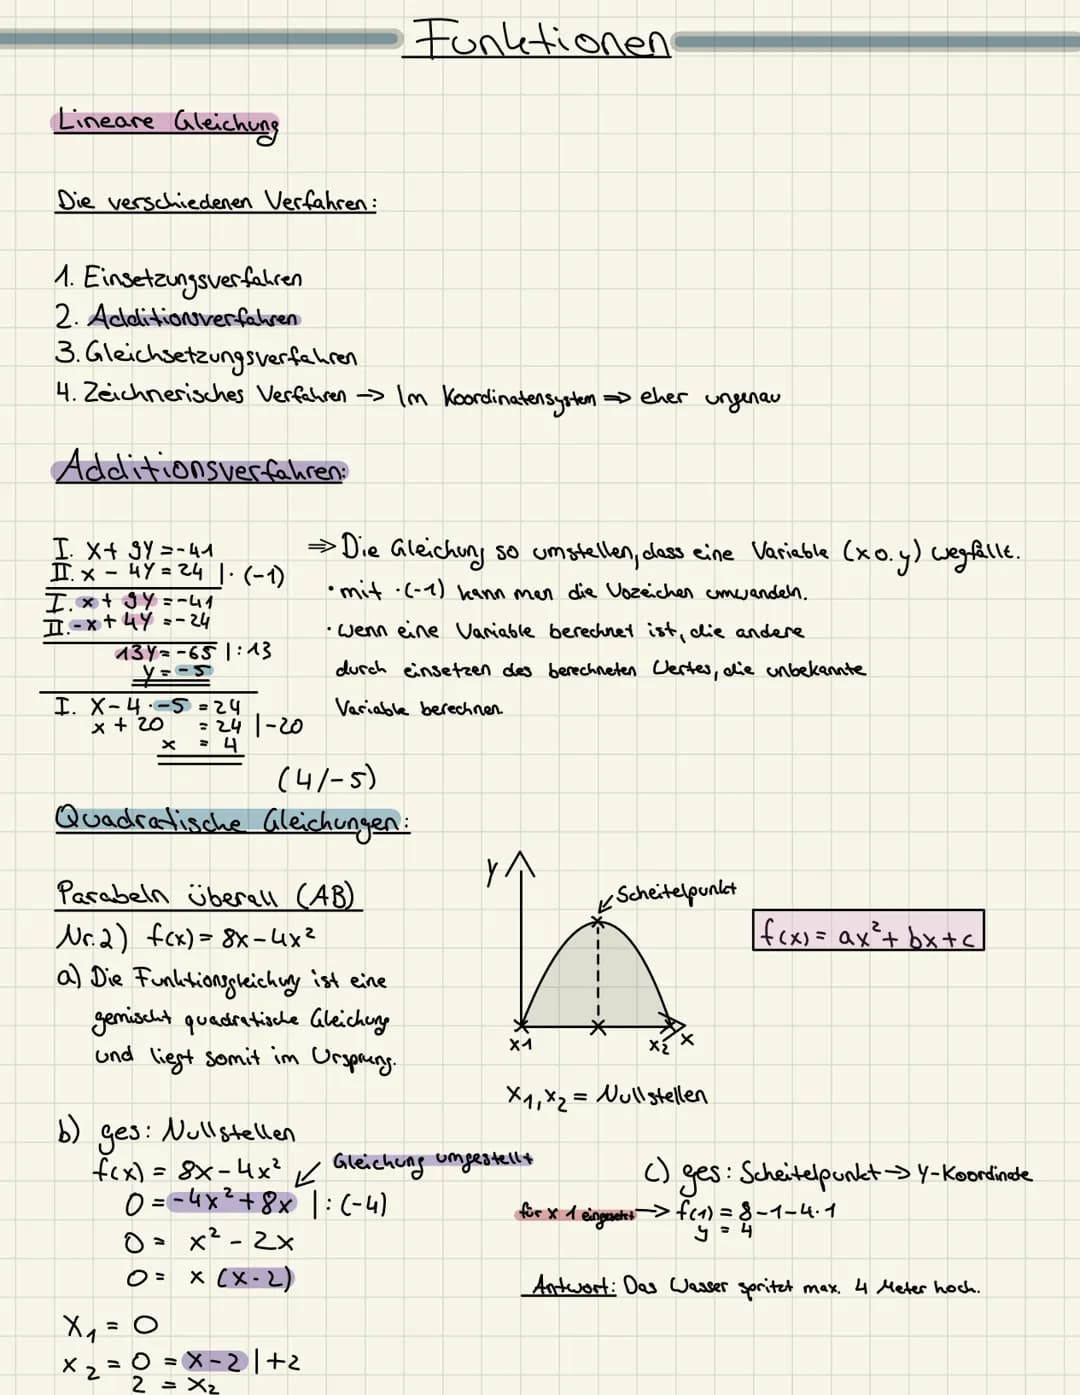 Funktionen
Lineare Gleichung
Die verschiedenen Verfahren:
1. Einsetzungsverfahren
2. Additionsverfahren
3. Gleichsetzungsverfahren
4. Zeichnerisches Verfahren -> Im Koordinatensystem => eher ungenau
Additionsverfahren:
I. x + 9y = -41
II. x - 4y = 24 | · (-1)
I. x + 9y = -41
II. -x + 4y = -24
13y = -65 | : 13
y = -5
I. x - 4 · -5 = 24
x + 20 = 24 | -20
x = 4
(4/-5)
=> Die Gleichung so umstellen, dass eine Variable (x o. y) wegfällt.
· mit ·(-1) kann man die Vozeichen umwandeln.
· wenn eine Variable berechnet ist, die andere
durch einsetzen des berechneten Wertes, die unbekannte
Variable berechnen.
Quadratische Gleichungen:
Parabeln überall (AB)
Nr. 2) f(x) = 8x - 4x²
a) Die Funktionsgleichung ist eine
gemischt quadratische Gleichung
und liegt somit im Ursprung.
y
Scheitelpunkt
x1
x2
x
x₁, x₂ = Nullstellen
f(x) = ax² + bx + c
b) ges: Nullstellen
f(x) = 8x - 4x²
Gleichung umgestellt
0 = -4x² + 8x | : (-4)
0 = x² - 2x
0 = x (x - 2)
x₁ = 0
x₂ = 0 = x - 2 | +2
2 = x₂
c) ges: Scheitelpunkt -> y-Koordinate
für x 1 eingesetzt -> f(1) = 8 - 1 - 4 · 1
y = 4
Antwort: Das Wasser spritzt max. 4 Meter hoch.